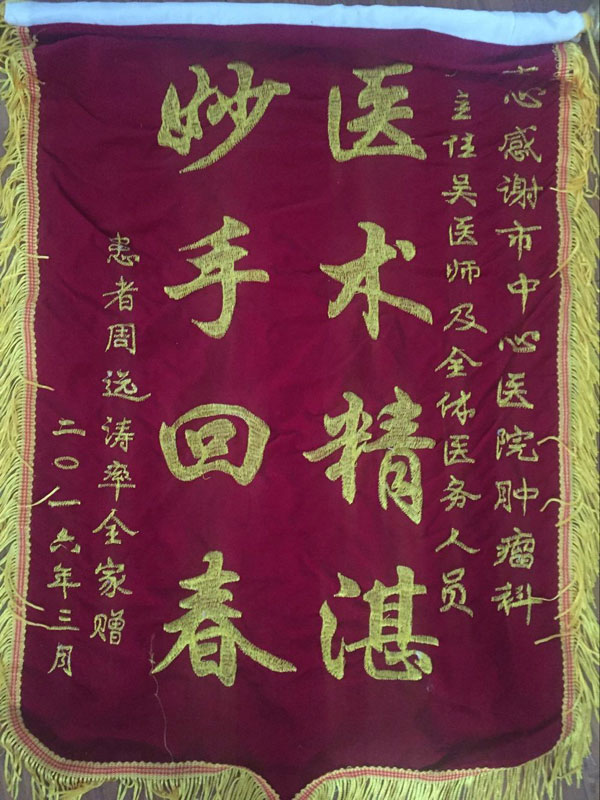 感谢市中心医院肿瘤科
主任吴医师及全体医务人员
医术精湛
妙手回春
患者周远涛率全家赠
二〇一六年三月